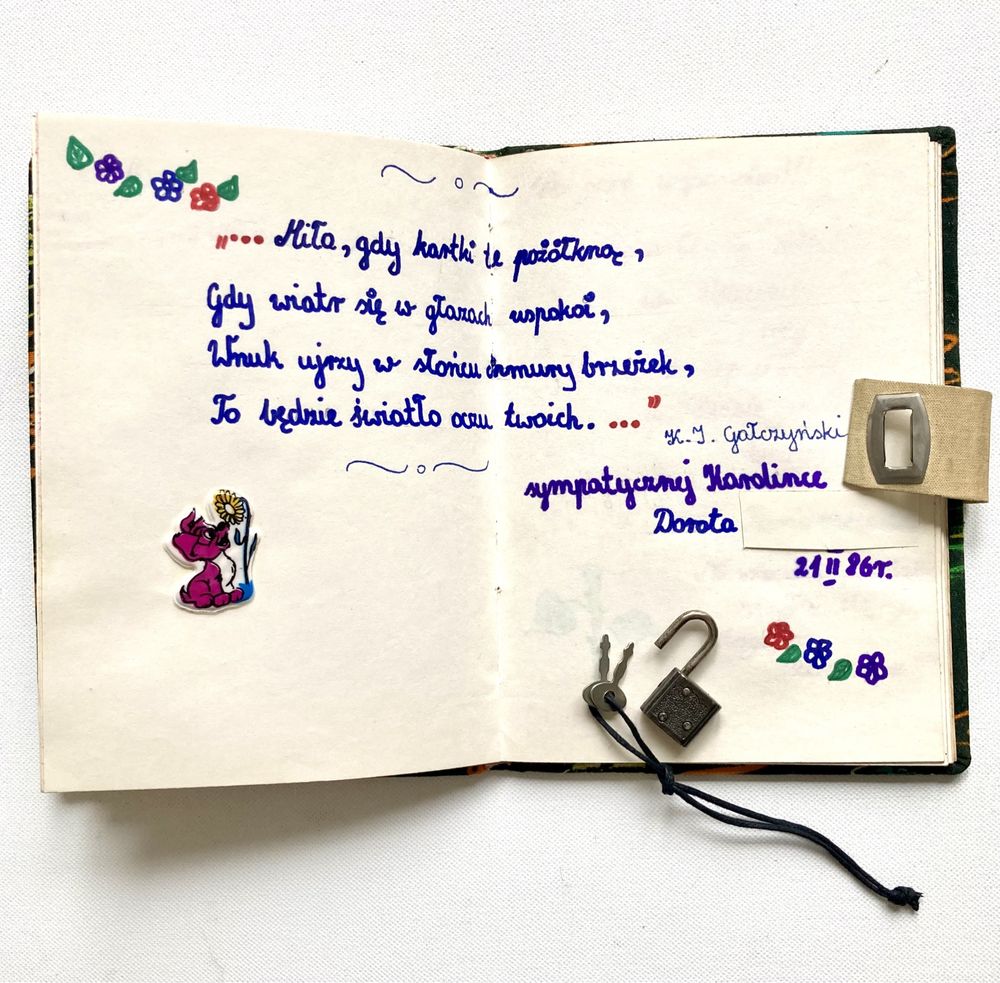 "... Miła, gdy kartki te pożółkną,
Gdy wiatr się w głazach uspokoi,
Wnuk ujrzy w słońcu chmury brzeżek,
To będzie światło oczu twoich. ..."
K. I. Gałczyński
sympatycznej Karolince
Dorota
21 II 86r.